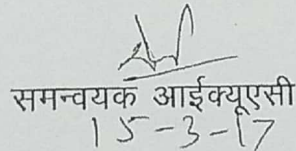 समन्वयक आईक्यूएसी
15-3-17